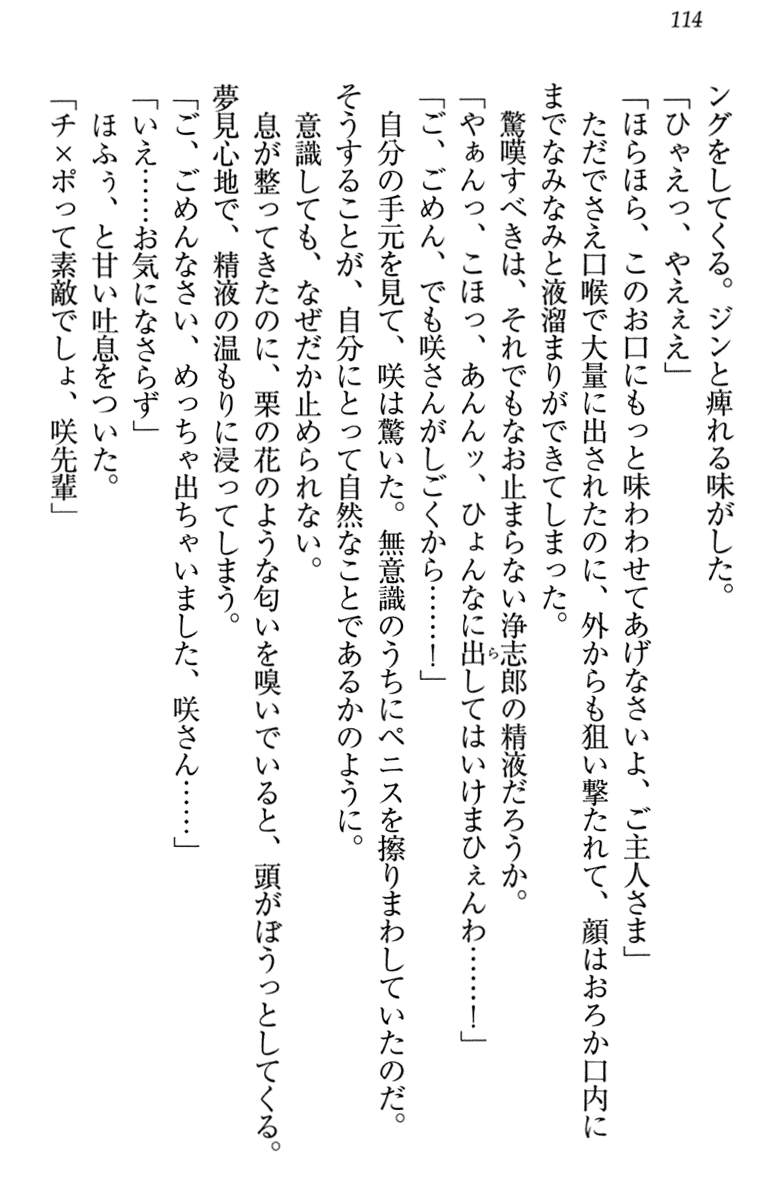 114
ングをしてくる。ジンと痺れる味がした。
「ひゃえっ、やえぇえ」
「ほらほら、このお口にもっと味わわせてあげなさいよ、ご主人さま」
ただでさえ口喉で大量に出されたのに、外からも狙い撃たれて、顔はおろか口内に
までなみなみと液溜まりができてしまった。
驚嘆すべきは、それでもなお止まらない浄志郎の精液だろうか。
「やぁんっ、こほっ、あんんッ、ひょんなに出らしてはいけまひぇんわ……！」
「ご、ごめん、でも咲さんがしごくから……！」
自分の手元を見て、咲は驚いた。無意識のうちにペニスを擦りまわしていたのだ。
そうすることが、自分にとって自然なことであるかのように。
意識しても、なぜだか止められない。
息が整ってきたのに、栗の花のような匂いを嗅いでいると、頭がぼうっとしてくる。
夢見心地で、精液の温もりに浸ってしまう。
「ご、ごめんなさい、めっちゃ出ちゃいました、咲さん……」
「いえ……お気になさらず」
ほふぅ、と甘い吐息をついた。
「チ×ポって素敵でしょ、咲先輩」